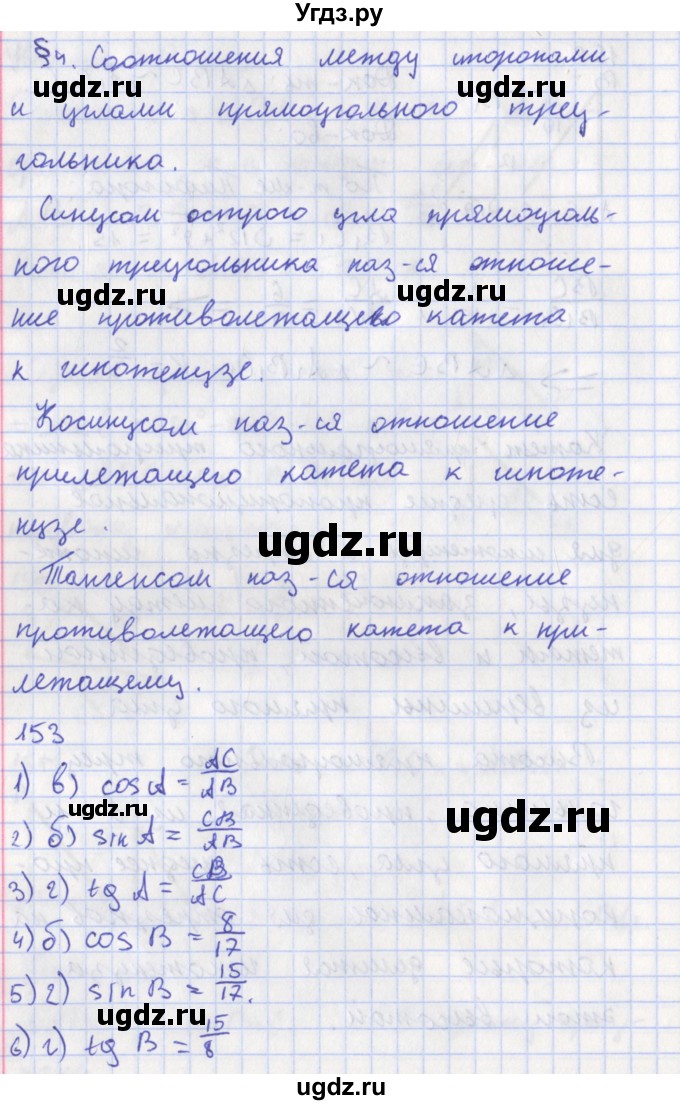 Угдз.ру
§4. Соотношения между сторонами
и углами прямоугольного треу-
гольника.
Синусом острого угла прямоуголь-
ного треугольника наз-ся отноше-
ugdz.ru ugdz.ru
ние противолежащего катета
к гипотенузе.
Косинусом наз-ся отношение
прилежащего катета к гипоте-
ugdz.ru
нузе.
Тангенсом наз-ся отношение
противолежащего катета к при-
лежащему.
ugdz.ru
153
1) в) cos A = AC/AB
ugdz.ru
2) б) sin A = CB/AB
ugdz.ru
3) г) tg A = CB/AC
4) б) cos B = 8/17
5) г) sin B = 15/17.
ugdz.ru
6) г) tg B = 15/8
ugdz.ru